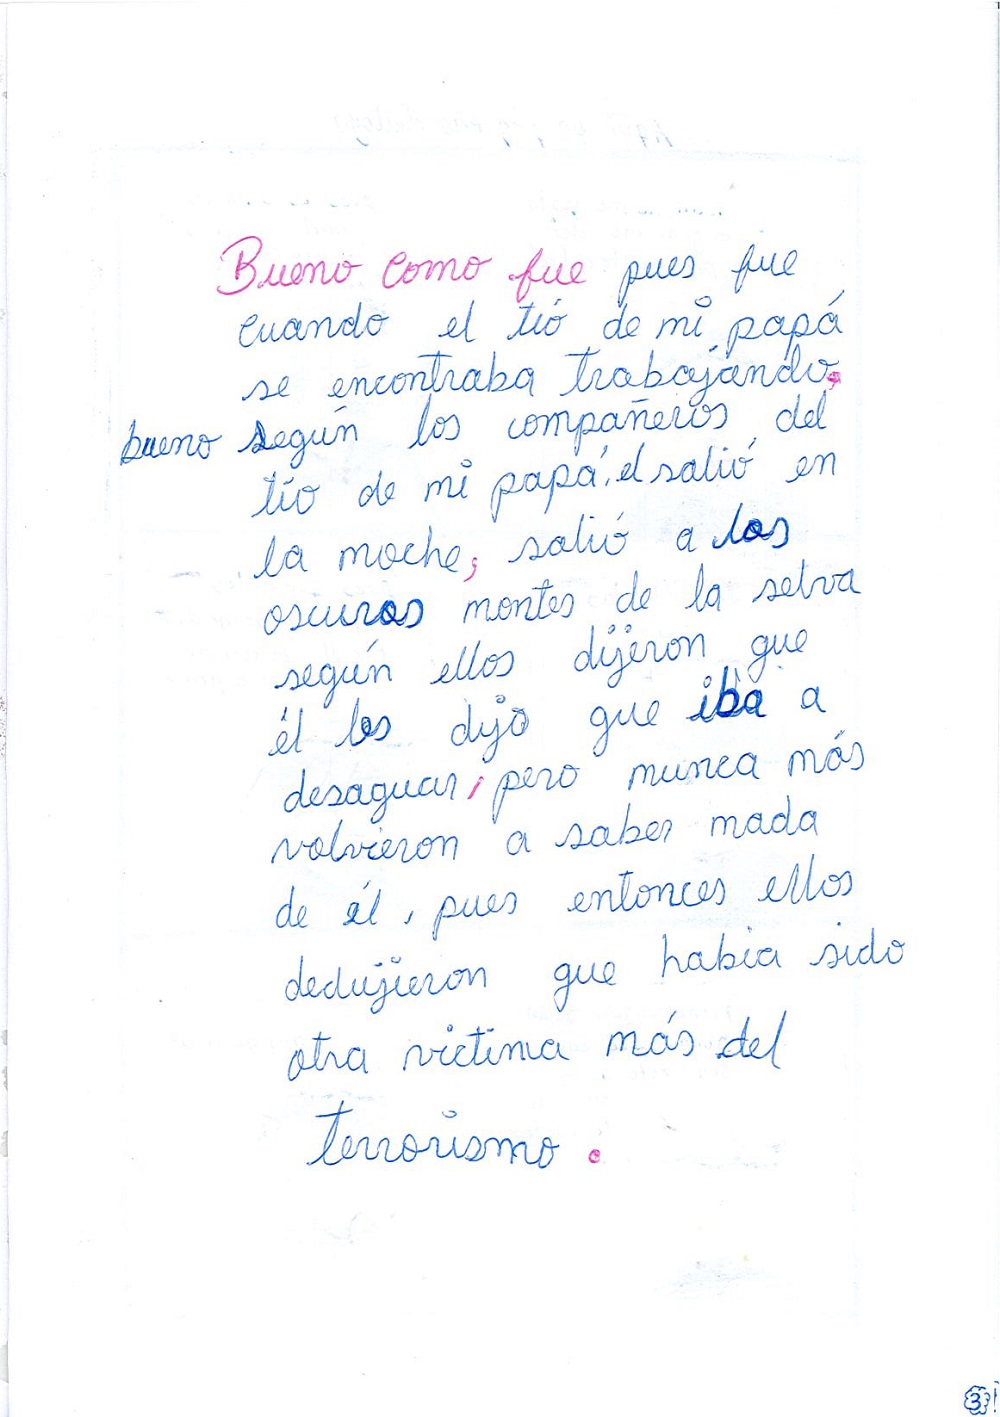 Bueno como fue pues fue
cuando el tió de mi papá
se encontraba trabajándo,
bueno según los compañeros del
tío de mi papá, el salió en
la noche, salió a los
oscuros montes de la selva
según ellos dijeron que
él les dijo que iba a
desaguar, pero nunca más
volvieron a saber nada
de él, pues entonces ellos
dedujieron que habia sido
otra victima más del
terrorismo.
3